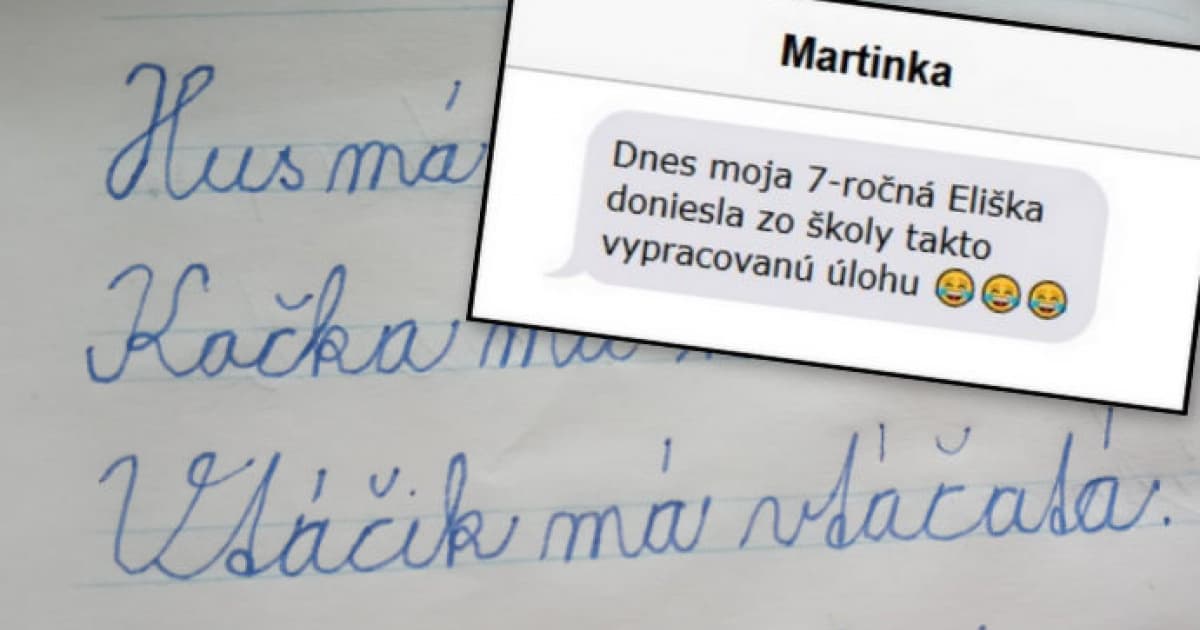 Hus má
Kačka má
Vtáčik má vtáčatá.
Martinka
Dnes moja 7-ročná Eliška
doniesla zo školy takto
vypracovanú úlohu 😂😂😂